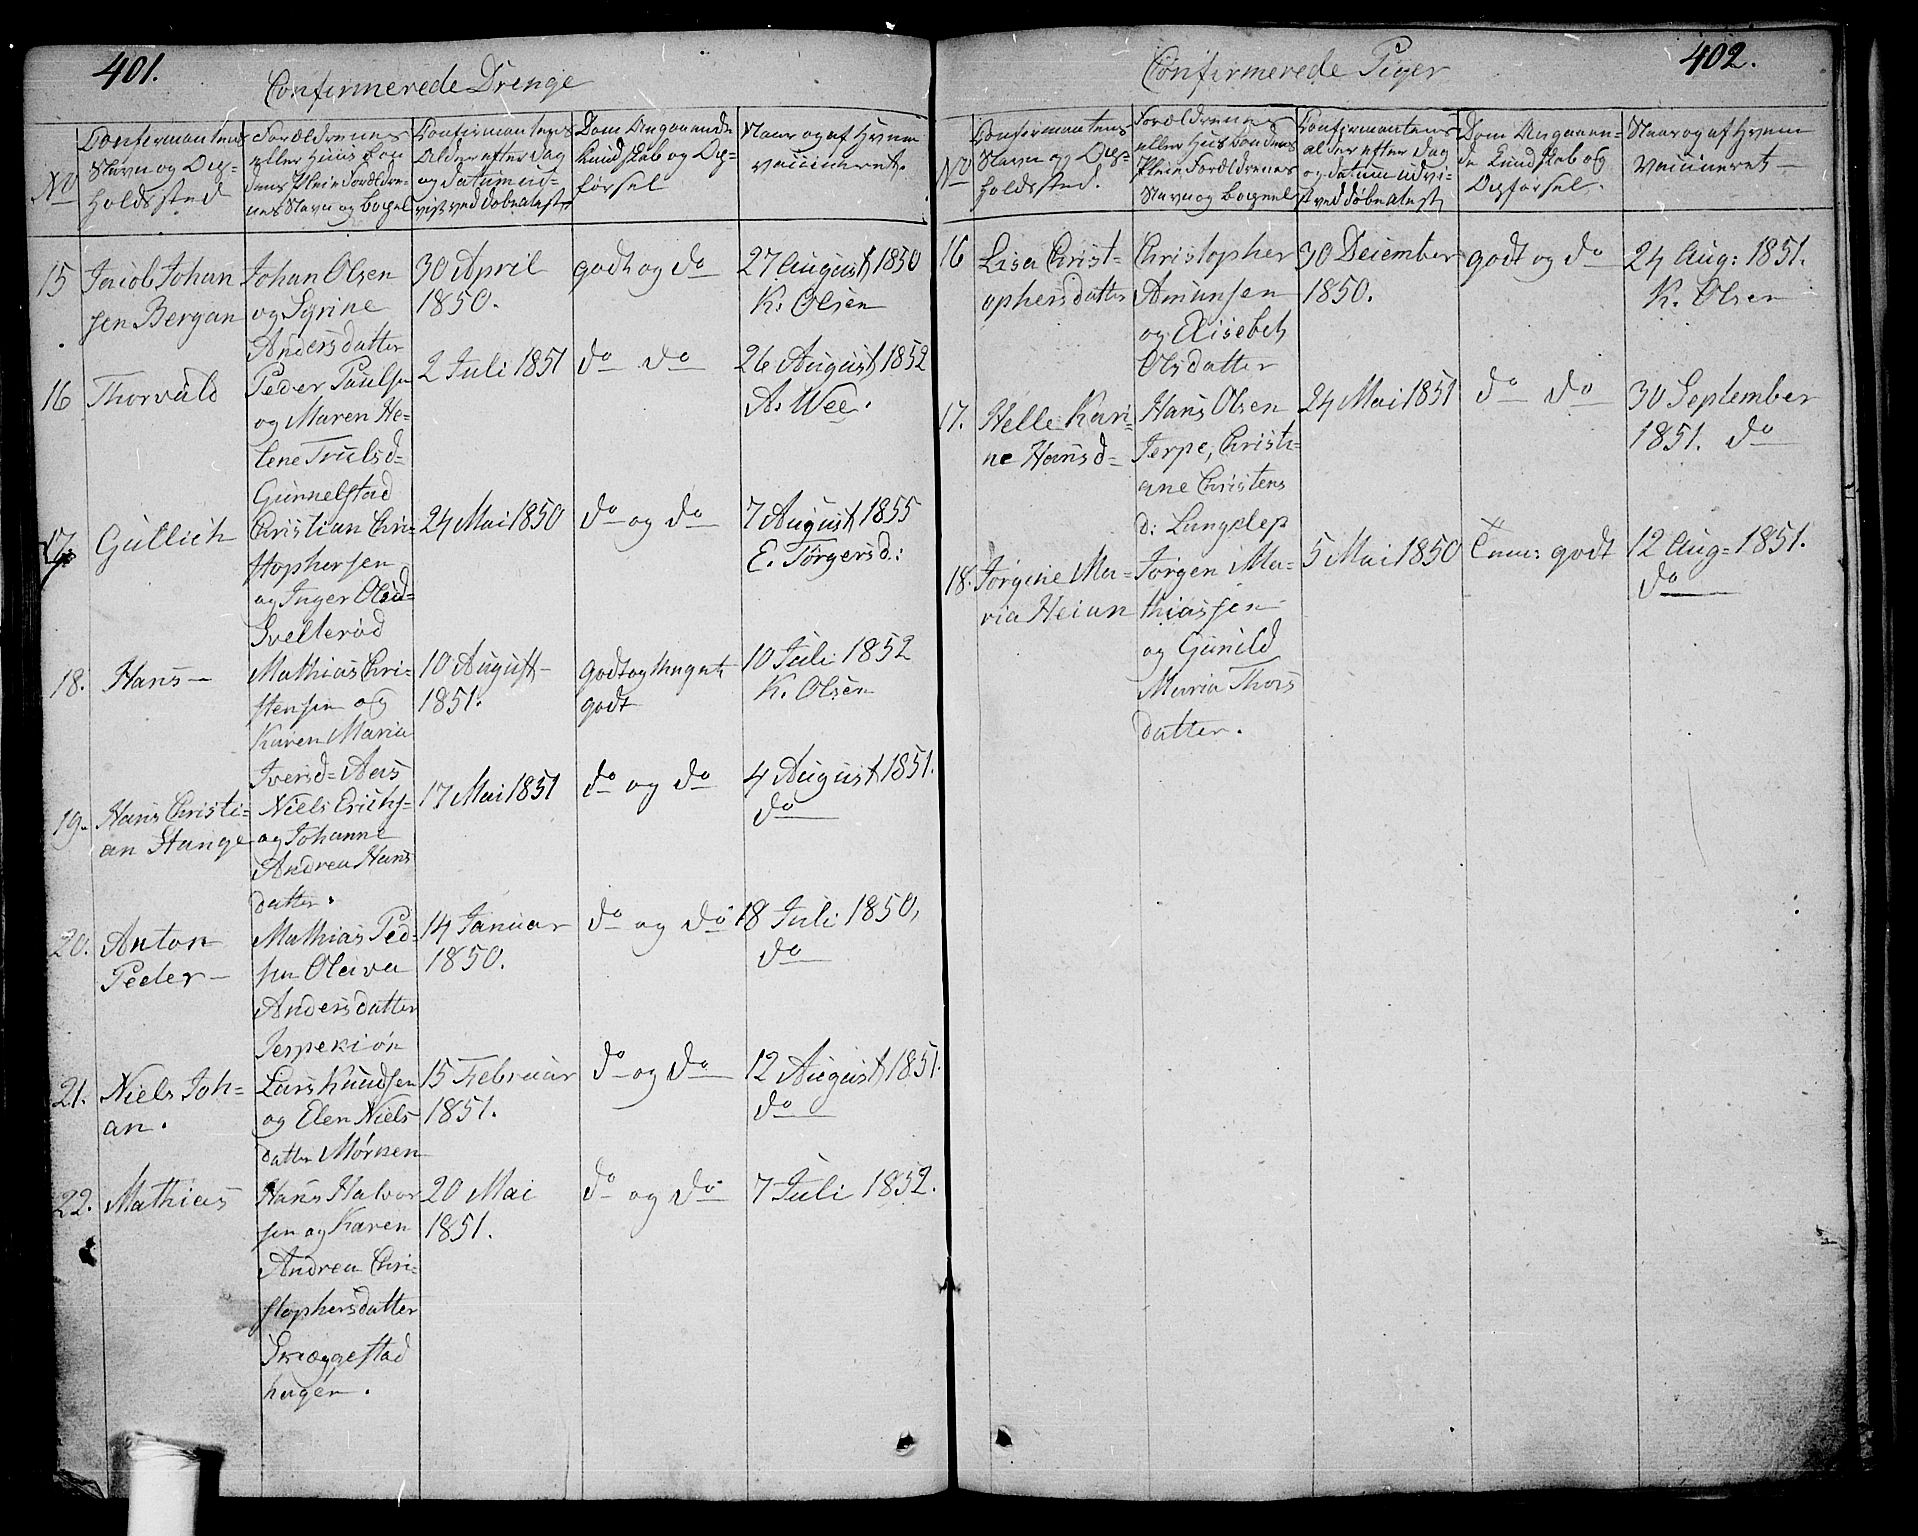 401.
Confirmerede Drenge
No
Confirmantens
Navn og Op-
holdssted
Forældrenes
eller Huus bon
dens Pleie Forældre-
nes Navn og bopæl
Confirmantens
Alder efter dag
og datum ud-
vist ved døbeatest
Dom Angaaende
Kundskab og Op-
førsel
Naar og af Hvem
vaccineret.
15
Jacob Johan
sen Bergan
Johan Olsen
og Syrine
Andersdatter
30 April
1850.
godt og do
27 August 1850
K. Olsen
16
Thorvald
Peder Paulsen
og Maren He-
lene Trulsd-
Gunnelstad
2 Juli 1851
do do
26 August 1852
A. Wee.
17.
Gullich
Christian Chri-
stophersen
og Inger Olsd-
Svelterød
24 Mai 1850
do og do
7 August 1855
E. Torgersd:
18.
Hans-
Mathias Chri-
stensen og
Karen Maria
Iversd= Aas
10 August-
1851.
godt og Meget
godt
10 Juli 1852
K. Olsen
19.
Hans Christi-
an Stange
Niels Erichs-
og Johanne
Andrea Hans
datter.
17 Mai 1851
do og do
4 August 1851.
do
20.
Anton
Peder-
Mathias Ped-
sen Oleiva
Andersdatter
Jerpekiøn
14 Januar
1850.
do og do
18 Juli 1850,
do
21.
Niels Joh-
an.
Lars Knudsen
og Elen Niels
datter Mørken
15 Februar
1851.
do og do
12 August 1851.
do
22.
Mathias
Hans Halvor
sen og Karen
Andrea Chri-
stophersdatter
Skiæggestad
hagen.
20 Mai
1851.
do og do
7 Juli 1852.
402.
Confirmerede Piger
No
Confirmantens
Navn og Op=
holdssted.
Forældrenes
eller Husbondens
Pleie Forældrenes
Navn og bopæl
Confirmantens
alder efter dag
og datum udvi-
st ved døbeatest
Dom Angaaen-
de Kundskab og
Opførsel.
Naar og af Hvem
Vaccineret-
16
Lisa Christ-
ophersdatter
Christopher
Amunsen
og Elisebet
Olsdatter
30 December
1850.
godt og do
24 Aug: 1851.
K. Olsen
17.
Helle Kari-
ne Hansd-
Hans Olsen
Jerpe, Christi-
ane Christens
d: Langslep
24 Mai 1851
do do
30 September
1851. do
18.
Jørgine Ma-
ria Heian
Jørgen Ma-
thiassen
og Gunild
Maria Thors
datter.
5 Mai 1850
godt
12 Aug= 1851.
do